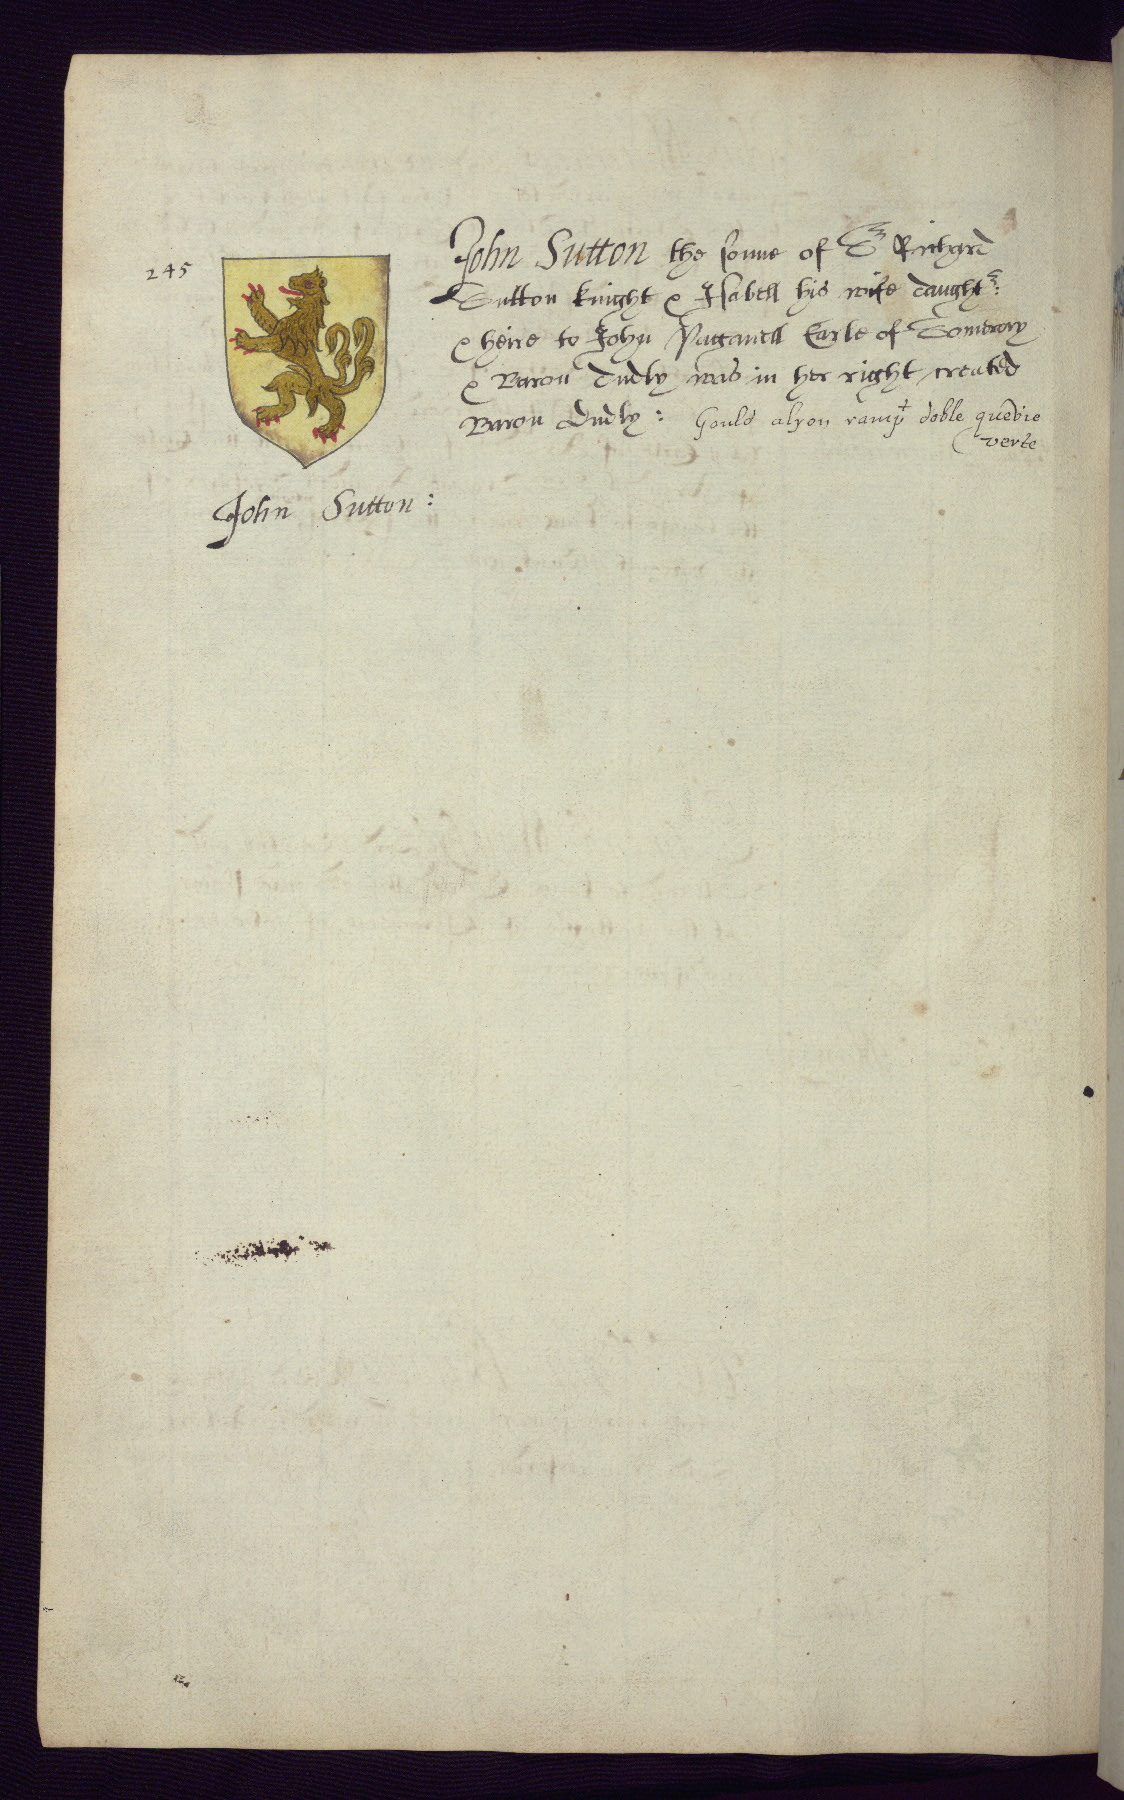 245
John Sutton the sonne of Sr Richard
Sutton knight & Isabell his wife daughtr:
& heire to John Paganell Earle of Someray
& Baron Dudly was in her right created
Baron Dudly: Gould a lyon rampt doble quevie
verte
John Sutton: